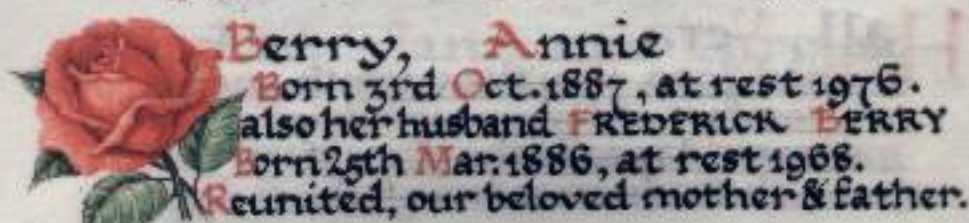 Berry, Annie
Born 3rd Oct. 1887, at rest 1976.
also her husband FREDERICK BERRY
Born 25th Mar. 1886, at rest 1968.
Reunited, our beloved mother & father.